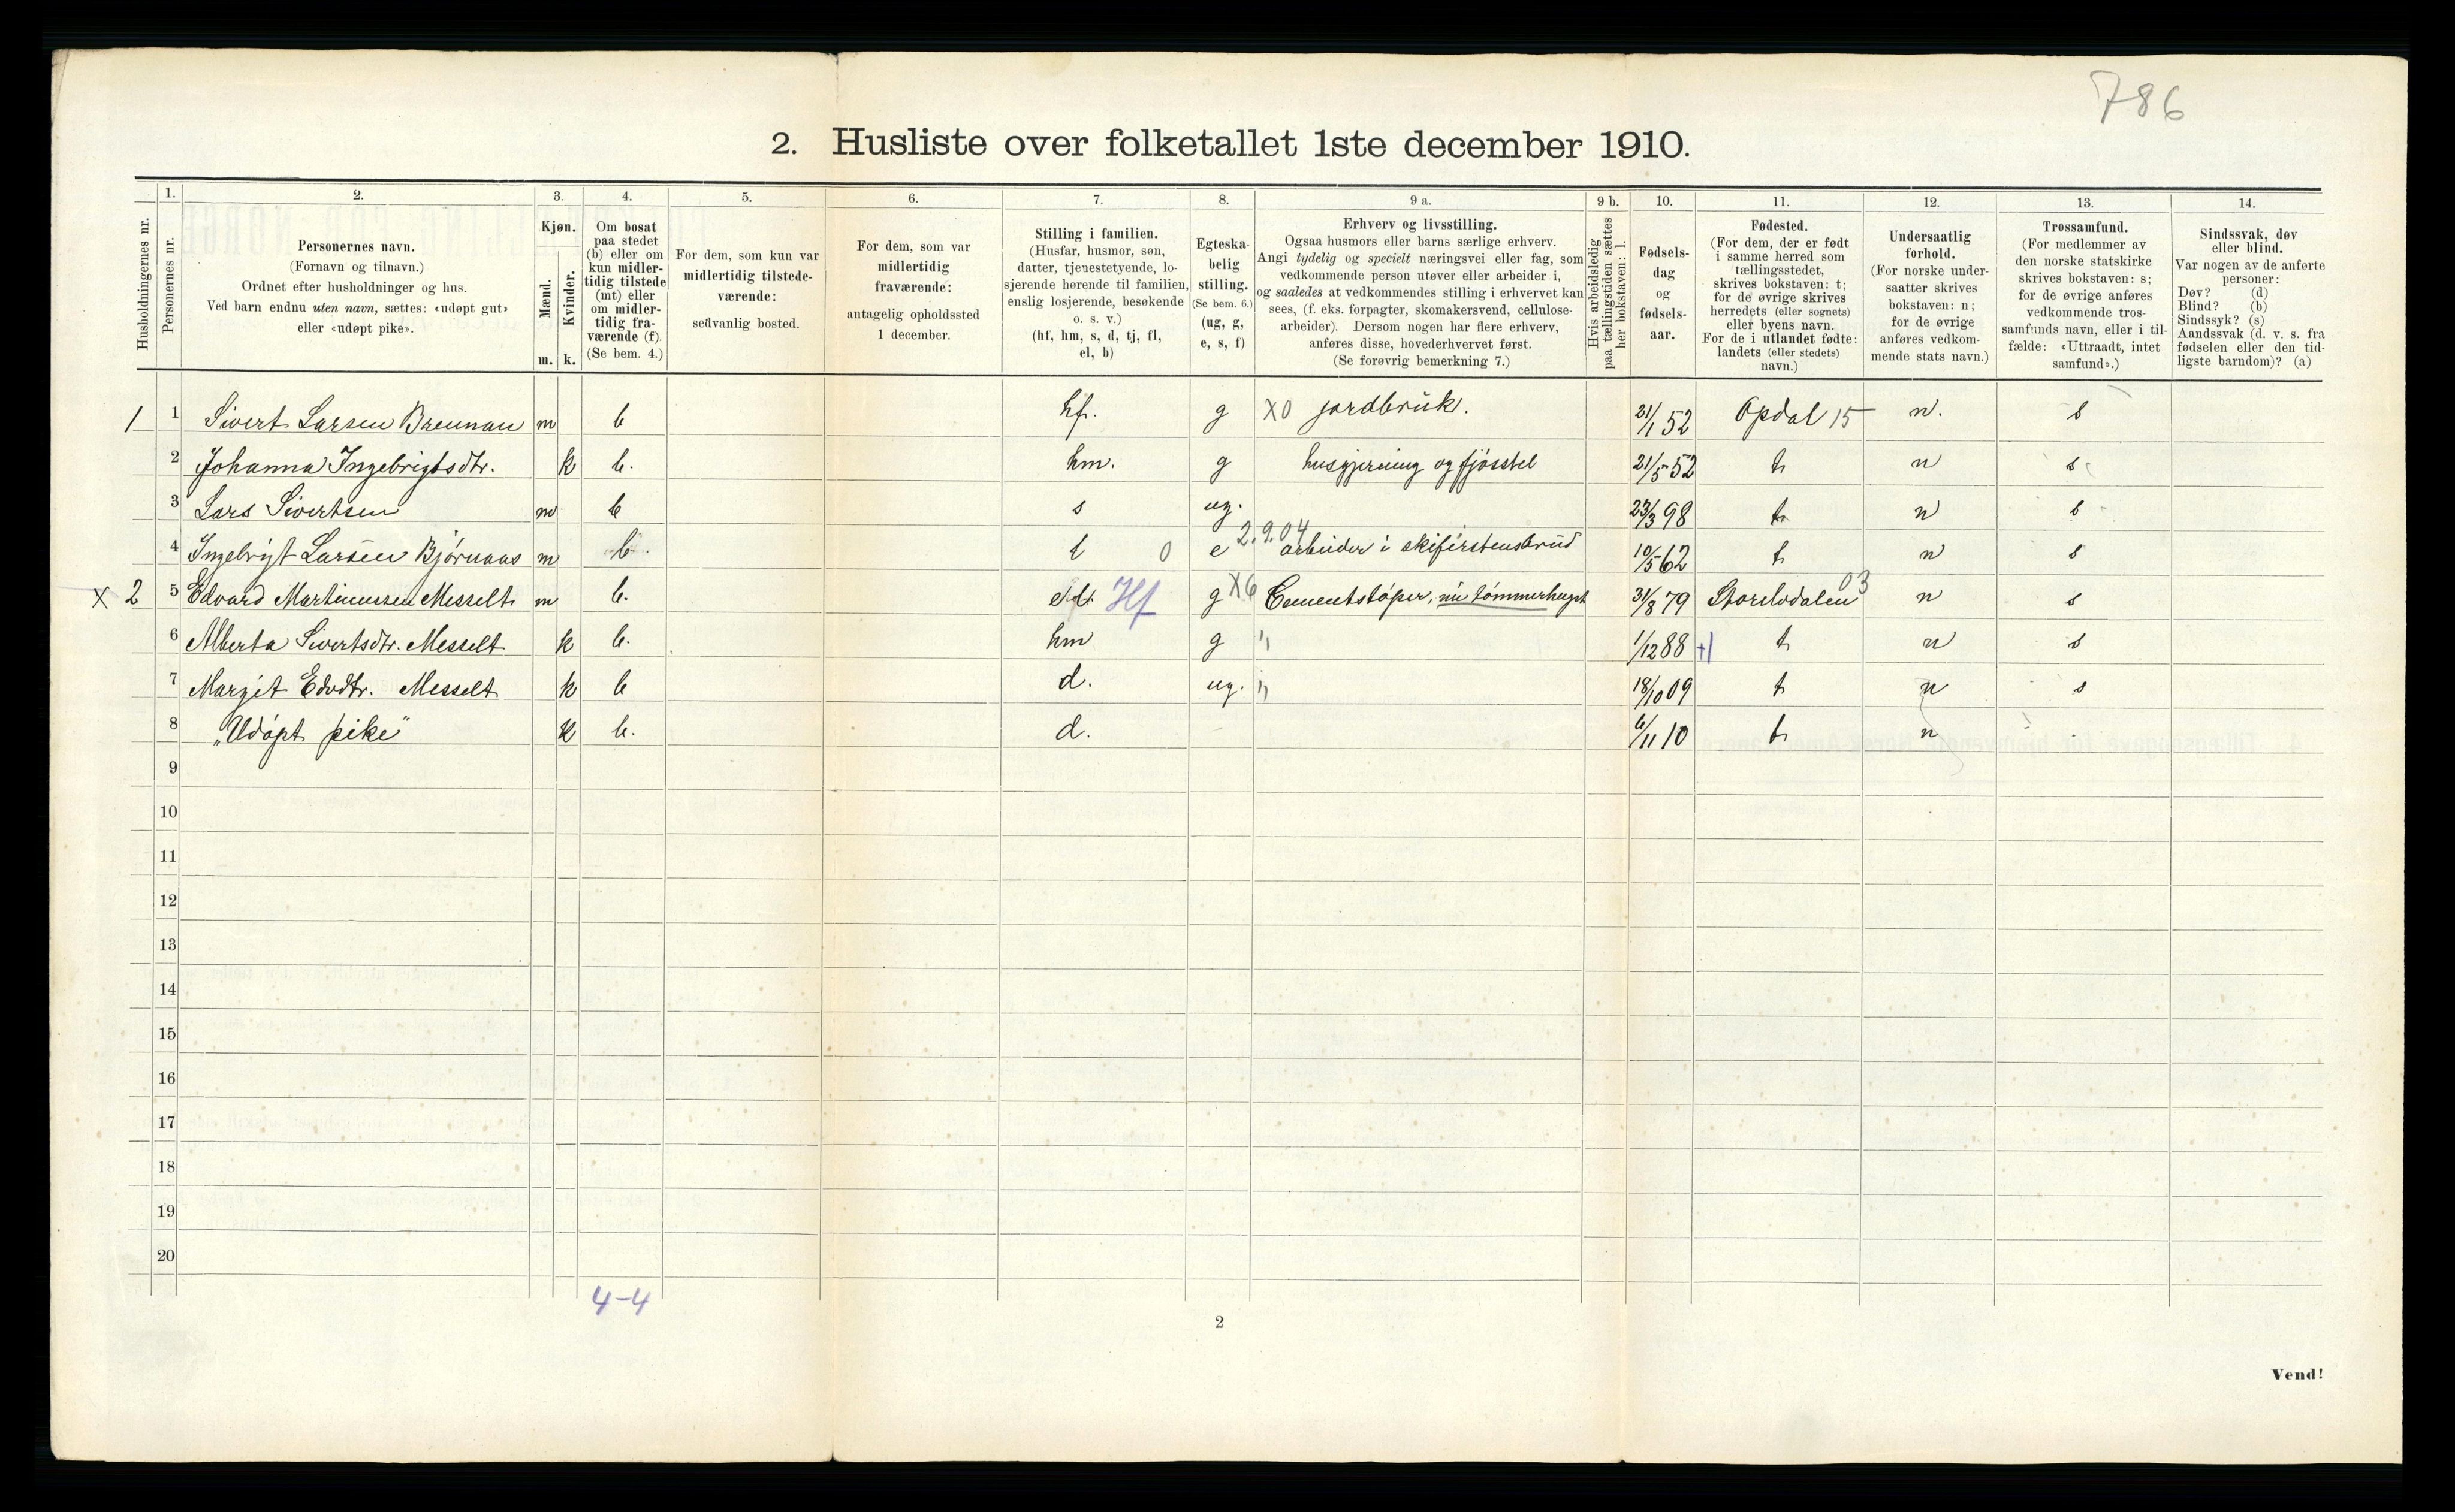 786
2. Husliste over folketallet 1ste december 1910.
Husholdningernes nr.
1.
Personernes nr.
2.
Personernes navn.
(Fornavn og tilnavn.)
Ordnet efter husholdninger og hus.
Ved barn endnu uten navn, sættes: «udøpt gut»
eller «udøpt pike».
3.
Kjøn.
Mænd.
Kvinder.
m. k.
4.
Om bosat
paa stedet
(b) eller om
kun midler-
tidig tilstede
(mt) eller
om midler-
tidig fra-
værende (f).
(Se bem. 4.)
5.
For dem, som kun var
midlertidig tilstede-
værende:
sedvanlig bosted.
6.
For dem, som var
midlertidig
fraværende:
antagelig opholdssted
1 december.
7.
Stilling i familien.
(Husfar, husmor, søn,
datter, tjenestetyende, lo-
sjerende hørende til familien,
enslig losjerende, besøkende
o. s. v.)
(hf, hm, s, d, tj, fl,
el, b)
8.
Egteska-
belig
stilling.
(Se bem. 6.)
(ug, g,
e, s, f)
9 a.
Erhverv og livsstilling.
Ogsaa husmors eller barns særlige erhverv.
Angi tydelig og specielt næringsvei eller fag, som
vedkommende person utøver eller arbeider i,
og saaledes at vedkommendes stilling i erhvervet kan
sees, (f. eks. forpagter, skomakersvend, cellulose-
arbeider). Dersom nogen har flere erhverv,
anføres disse, hovederhvervet først.
(Se forøvrig bemerkning 7.)
9 b.
Hvis arbeidsledig
paa tællingstiden sættes
her bokstaven: l.
10.
Fødsels-
dag
og
fødsels-
aar.
11.
Fødested.
(For dem, der er født
i samme herred som
tællingsstedet,
skrives bokstaven: t;
for de øvrige skrives
herredets (eller sognets)
eller byens navn.
For de i utlandet fødte:
landets (eller stedets)
navn.)
12.
Undersaatlig
forhold.
(For norske under-
saatter skrives
bokstaven: n;
for de øvrige
anføres vedkom-
mende stats navn.)
13.
Trossamfund.
(For medlemmer av
den norske statskirke
skrives bokstaven: s;
for de øvrige anføres
vedkommende tros-
samfunds navn, eller i til-
fælde: «Uttraadt, intet
samfund».)
14.
Sindssvak, døv
eller blind.
Var nogen av de anførte
personer:
Døv? (d)
Blind? (b)
Sindssyk? (s)
Aandssvak (d. v. s. fra
fødselen eller den tid-
ligste barndom)? (a)
1 1 Sivert Larsen Brennan m b hf. g XO jordbruk. 21/1 52 Opdal 15 n. s
2 Johanna Ingebrigtsdtr. k b. hm. g husgjerning og fjøsstel 21/5 52 t n s
3 Lars Sivertsen m b s ug. 23/3 98 t n s
4 Ingebrigt Larsen Bjørnaas m b l 0 e 2.9.04 arbeider i skiferstensbrud 10/5 62 t n s
X 2 5 Edvard Martinussen Messelt m b. Hf g X6 Cementstøper, nu tømmerhugst 31/8 79 Storelvdalen 03 n s
6 Alberta Sivertsdtr. Messelt k b. hm g " 1/12 88 +1 t n s
7 Margit Edvdtr. Messelt k b d. ug. " 18/10 09 t n s
8 „Udøpt pike" k b. d. 6/11 10 t n
9
10
11
12
13
14
15
16
17
18
19
20
4-4
2
Vend!